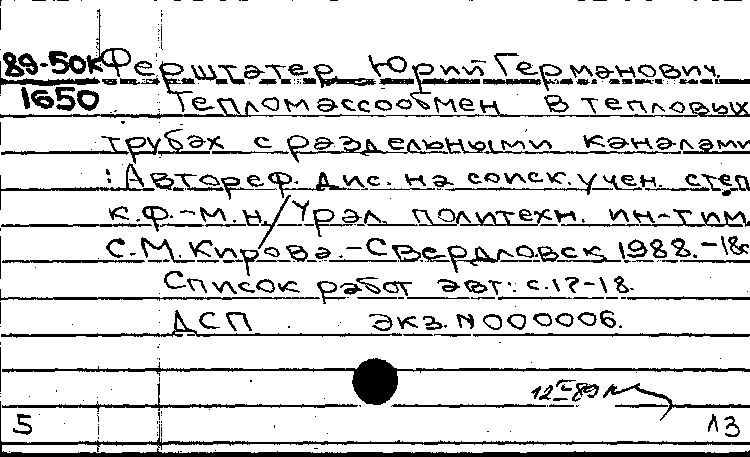 89-50к Ферштатер Юрий Германович
1650 Тепломассообмен в тепловых
трубах с раздельными каналами
: Автореф. дис. на соиск. учен. степ
к.ф.-м.н. / Урал. политехн. ин-т им.
С.М. Кирова. - Свердловск, 1988. - 18с
Список работ авт: с. 17-18.
ДСП экз. N 000006.
5 13